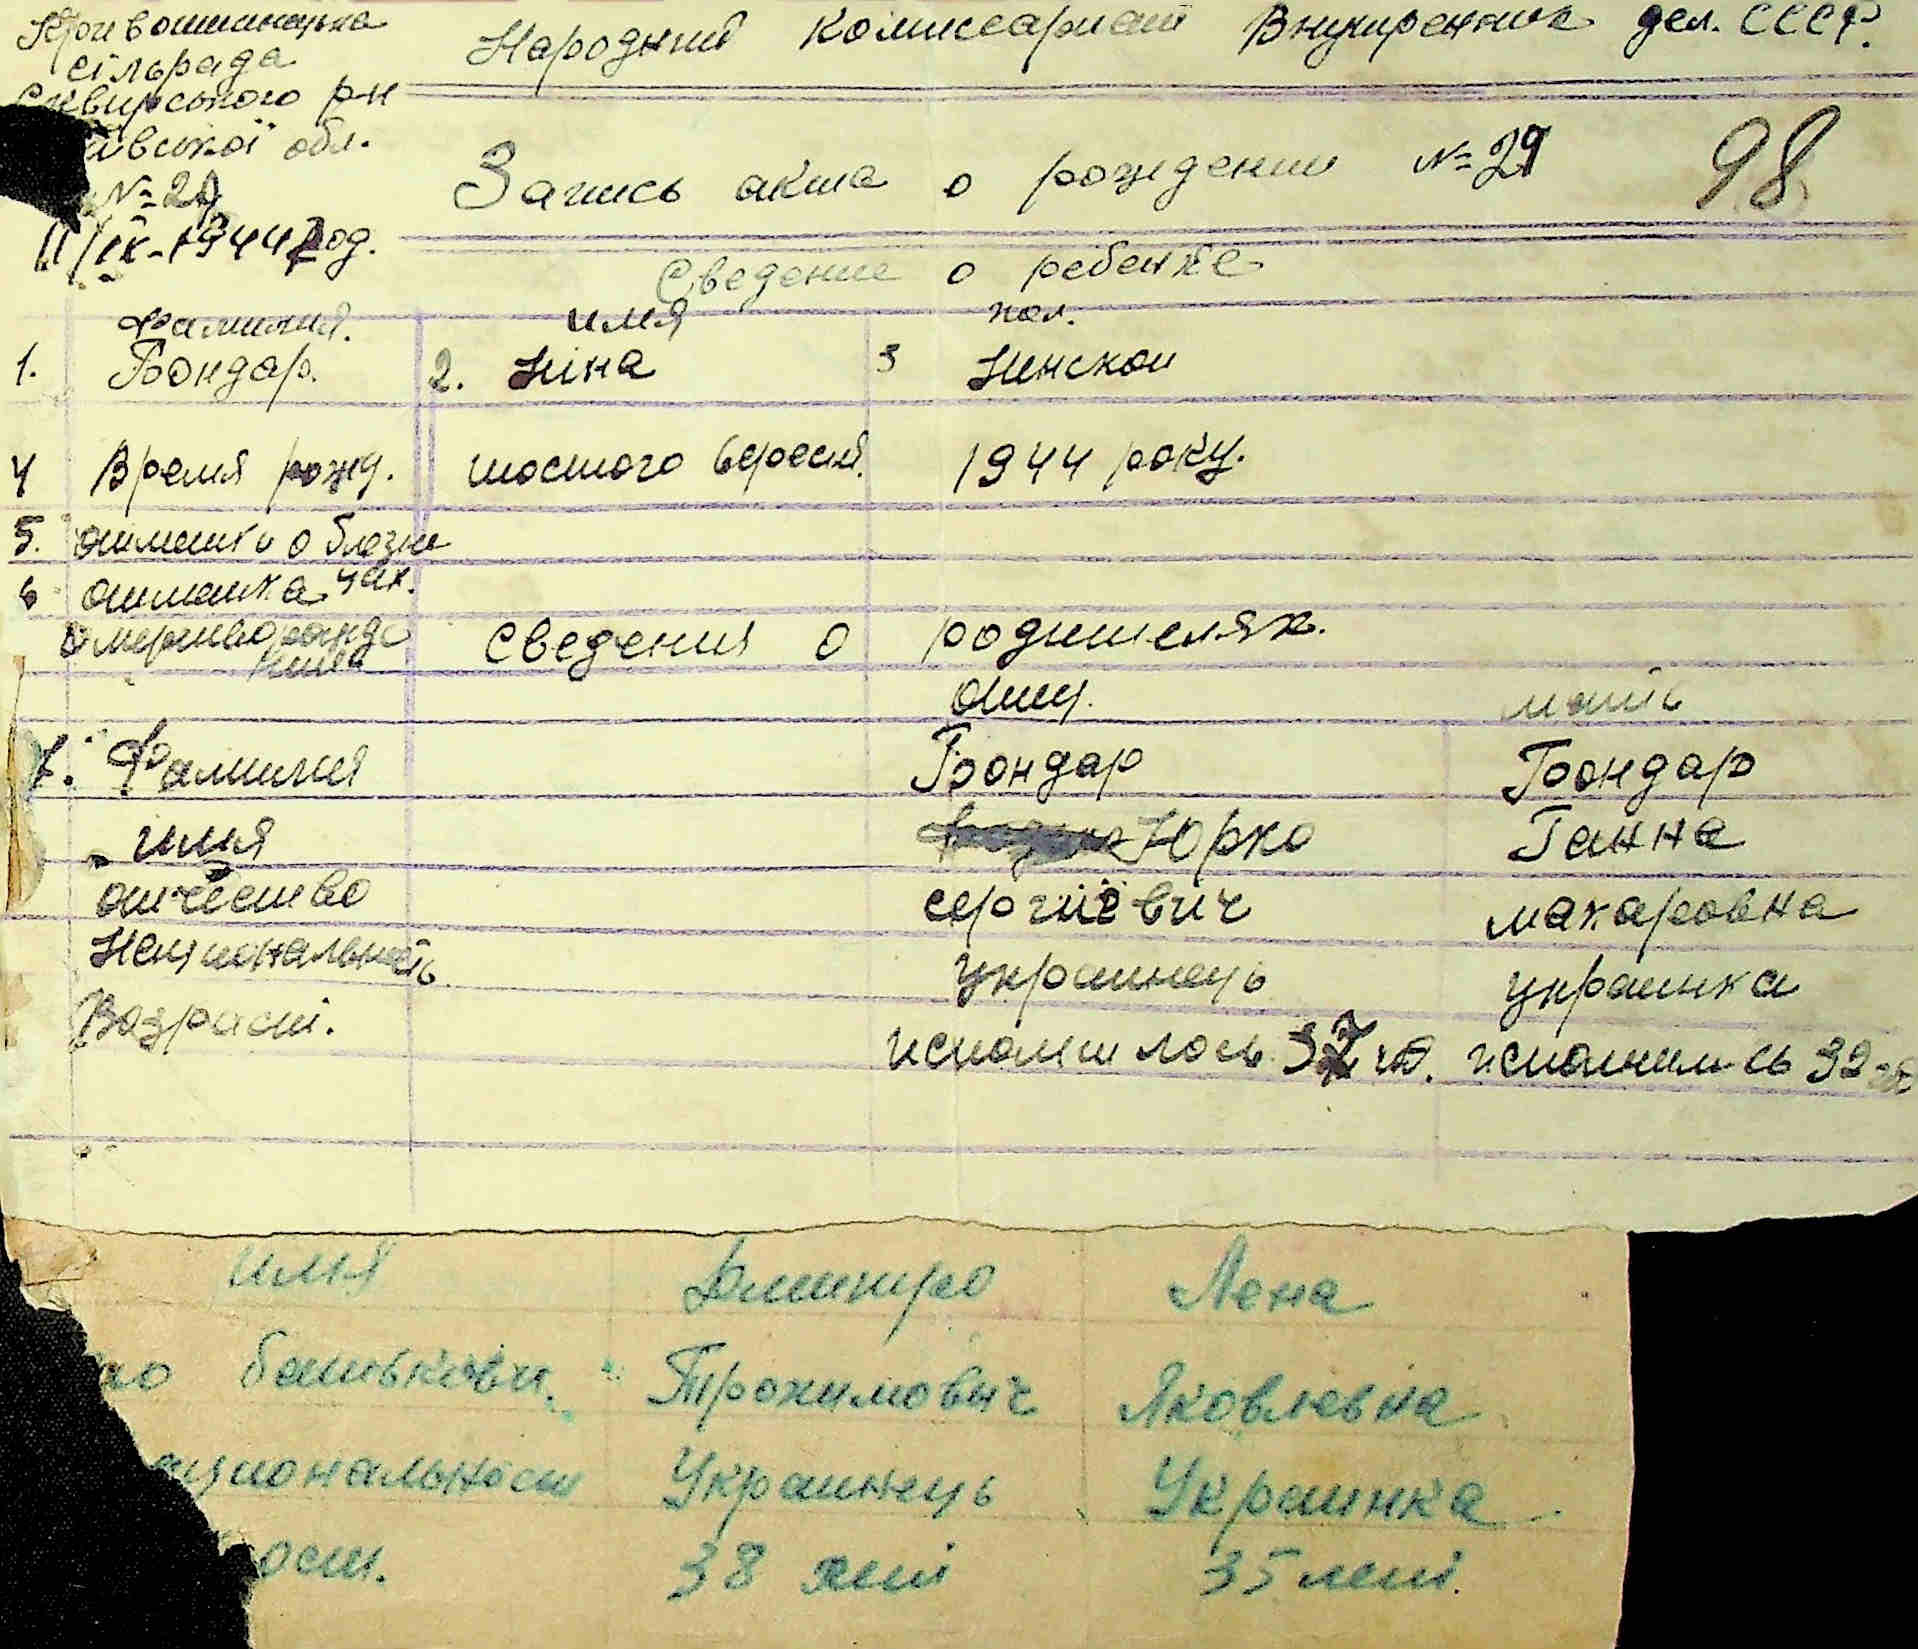 Кривошиинська
сільрада
Сквирського р-н
ївської обл.
№ 29
11/IX-1944 год.
Народний Комиссариат Внутренних дел. СССР.
Запись акта о рождении № 29
98
Сведение о ребенке
Фамилия. имя пол.
1. Бондар. 2. Ніна 3 Женской
4 Время рожд. шостого вересня. 1944 року.
5. отметки о близне
6 отметка
о мертворожде
Сведения о родителях.
отец. мать
7. Фамилия Бондар Бондар
имя Юрко Ганна
отчество сергіїевич макаровна
Национальность украинець украинка
Возраст. исполнилось 37 исполнил-сь 32
имя Дмитро Лена
по батькови. Трохимович Яковлевна
ациональност Украинець Украинка
раст. 38 лет 35 лет.